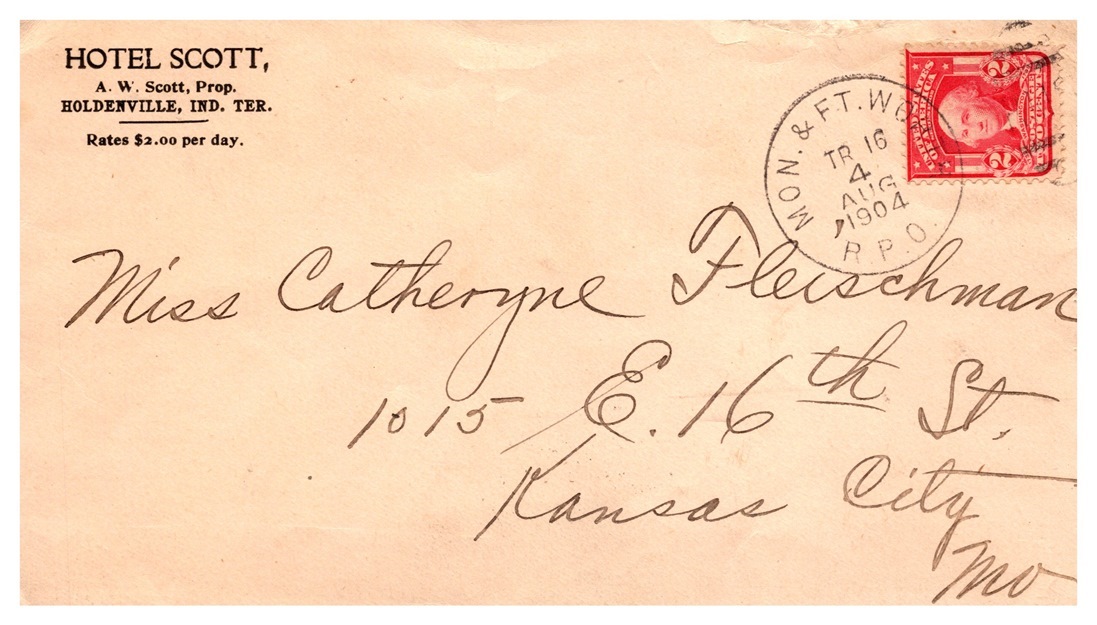 HOTEL SCOTT,
A. W. Scott, Prop.
HOLDENVILLE, IND. TER.
Rates $2.00 per day.
MON. & FT. WO
TR 16
4
AUG
1904
R. P. O.
UNITED STATES
OF AMERICA
2 2
Miss Catheryne Fleischman
1015 E. 16th St.
Kansas City
Mo